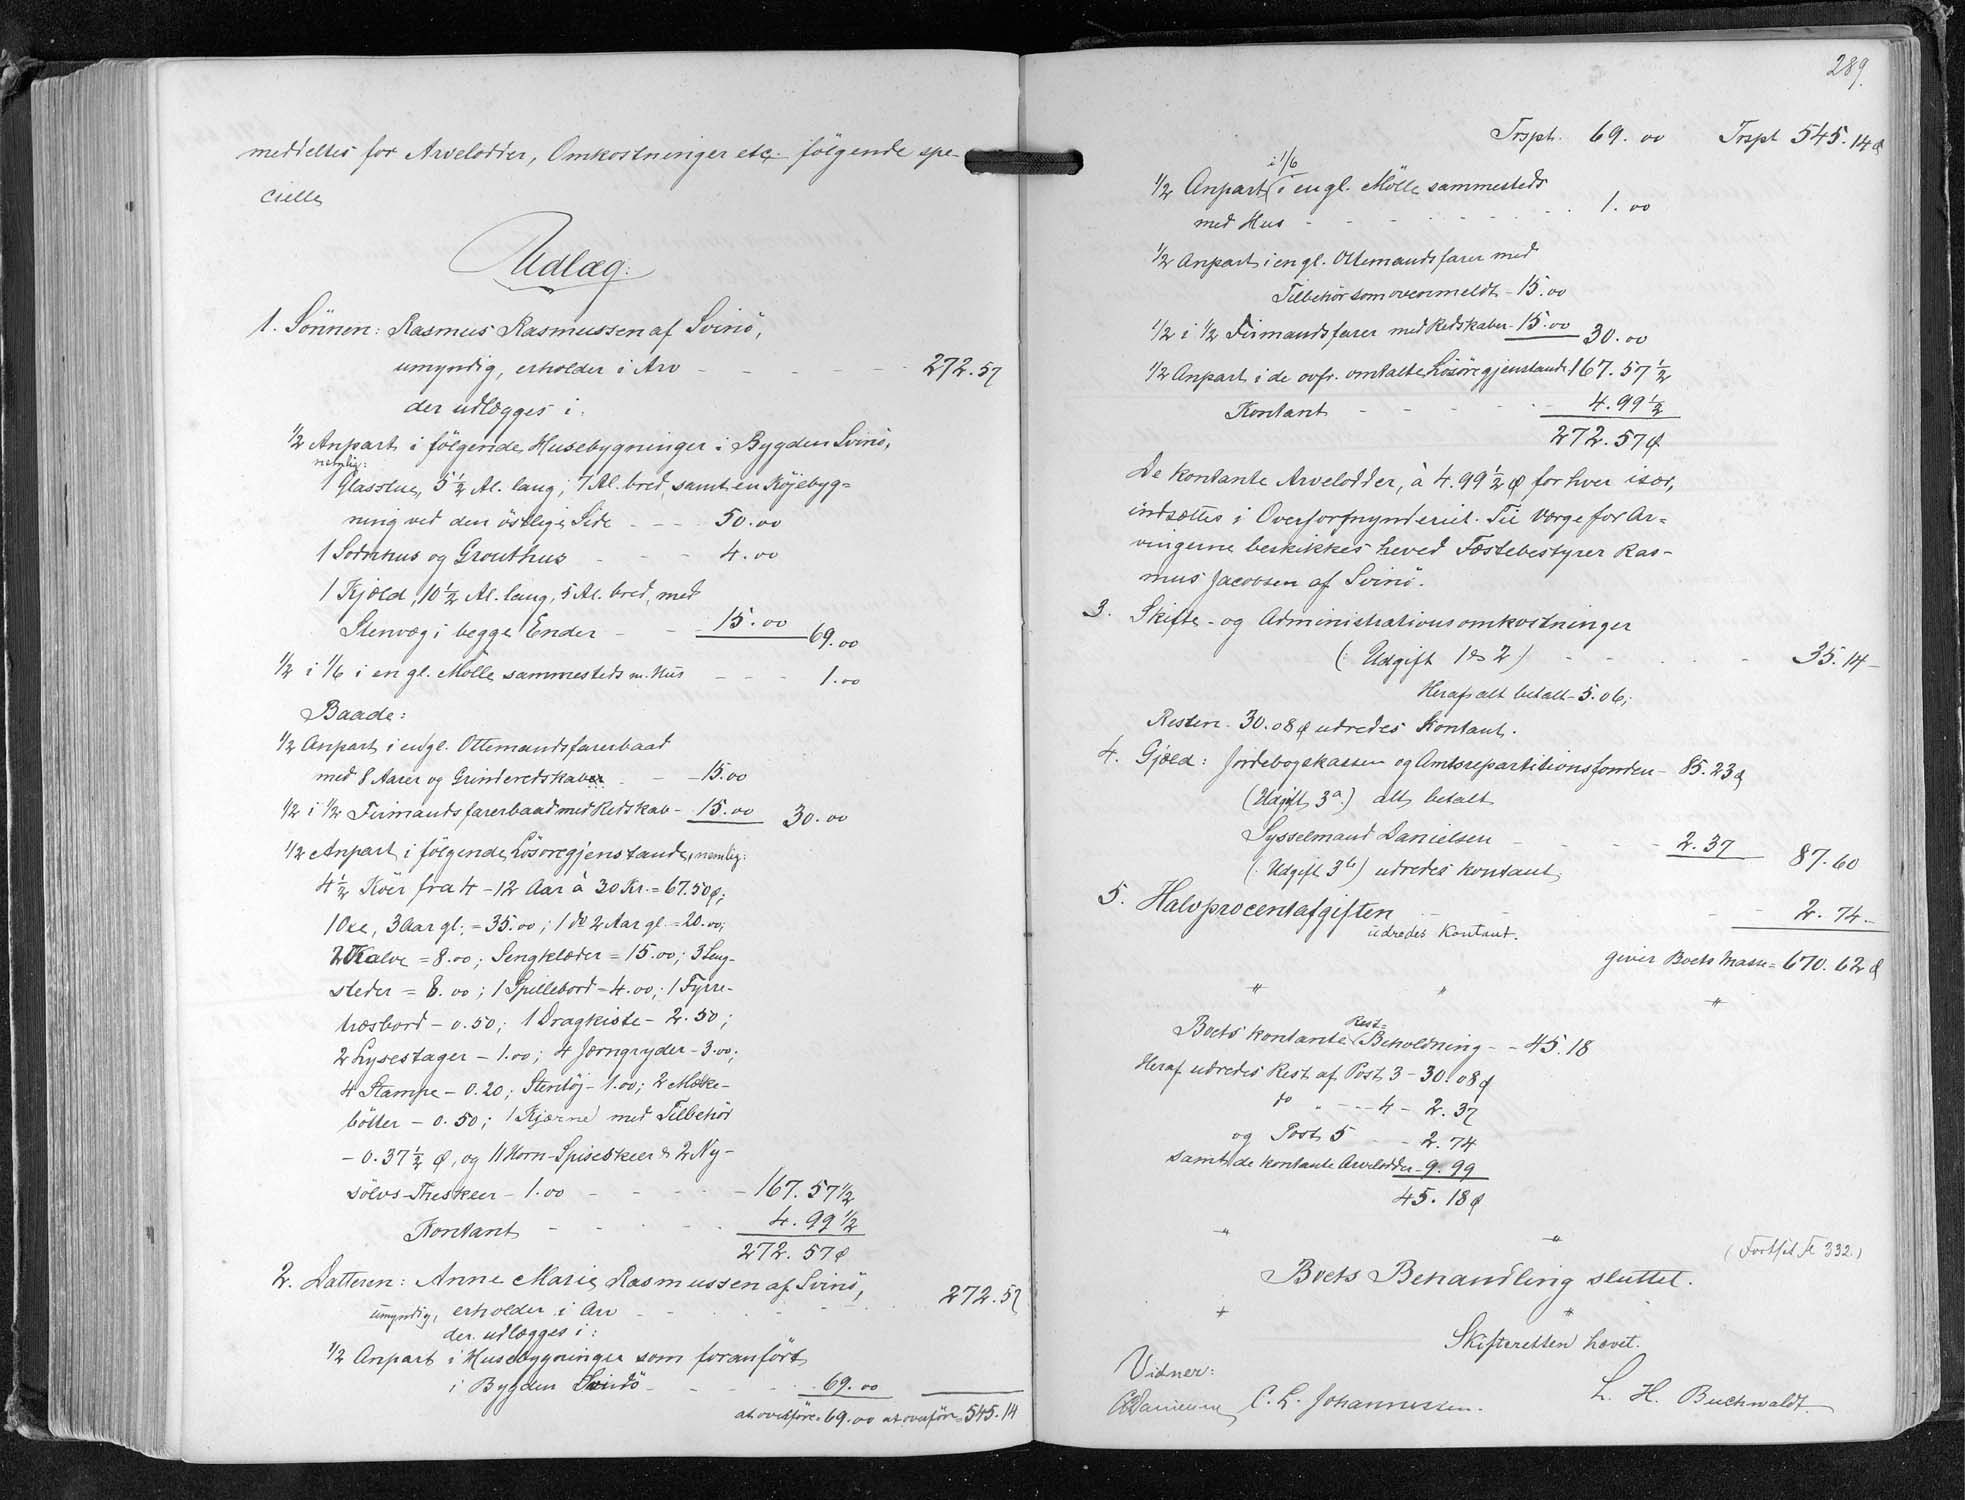 meddeltes for Arvelodder, Omkostninger etc. følgende spe-
cielle
Udlæg:
1. Sönnen: Rasmus Rasmussen af Svinö,
umyndig, erholder i Arv - - - - - 272.57
der udlægges i:
1/2 Anpart i følgende Husebygninger i Bygden Svinö,
nemlig:
1 Glasstue, 5 1/2 Al. lang, 7 Al. bred, samt en Köjebyg=
ning ved den östlige Side - - - 50.00
1 Sodnhus og Grouthus - - - 4.00
1 Kjæld, 10 1/2 Al. lang, 5 Al. bred, med
Stenvæg i begge Ender - - 15.00 69.00
1/2 i 1/6 i en gl. Mölle sammesteds m. Hus - - - 1.00
Baade:
1/2 Anpart i en gl. Ottemandsfarerbaad
med 8 Aarer og Grinderedskaber - - 15.00
1/2 i 1/2 Firmandsfarerbaad med Redskab - 15.00 30.00
1/2 Anpart i følgende Lösöregjenstande, nemlig:
4 1/2 Köer fra 4 - 12 Aar à 30 Kr. = 67.50 ø;
1 Oxe, 3 Aar gl. = 35.00; 1 do 2 Aar gl. = 20.00;
2 Kalve = 8.00; Sengklæder = 15.00; 3 Seng-
steder = 8.00; 1 Spillebord - 4.00; 1 Fyrre-
træsbord - 0.50; 1 Dragkiste - 2.50;
2 Lysestager - 1.00; 4 Jærngryder - 3.00;
4 Stampe - 0.20; Stentöj - 1.00; 2 Mælke-
bötter - 0.50; 1 Kjærne med Tilbehör
- 0.37 1/2 ø, og 11 Horn-Spiseskeer & 2 Ny-
sölvs-Theskeer - 1.00 - - - - 167.57 1/2
Kontant - - - - 4.99 1/2
272.57 ø
2. Datteren: Anne Marie Rasmussen af Svinö,
umyndig, erholder i Arv - - - - - 272.57
der udlægges i:
1/2 Anpart i Husebygninger som foranført
i Bygden Svinö - - - - 69.00
at overføre 69.00 at overføre 545.14
289.
Trspt. 69.00 Trspt 545.14 ø
i 1/6
1/2 Anpart i en gl. Mölle sammesteds
med Hus - - - - - - 1.00
1/2 Anpart i en gl. Ottemandsfarer med
Tilbehör som ovenmeldt - 15.00
1/2 i 1/2 Firmandsfarer med Redskaber - 15.00 30.00
1/2 Anpart i de ovfr. omtalte Lösöregjenstande 167.57 1/2
Kontant - - - - - 4.99 1/2
272.57 ø
De kontante Arvelodder, à 4.99 1/2 ø for hver især,
indsættes i Overformynderiet. Til Værge for Ar=
vingerne beskikkes herved Fæstebestyrer Ras-
mus Jacobsen af Svinö.
3. Skifte- og Administrationsomkostninger
(: Udgift 1 & 2:) - - - - - 35.14 -
Heraf alt betalt - 5.06;
Resten 30.08 ø udredes Kontant.
4. Gjæld: Jordebogskassen og Amtsrepartitionsfonden - 85.23 ø
(Udgift 3a.) alt betalt
Sysselmand Danielsen - - - - 2.37 87.60
(: Udgift 3b) udredes kontant.
5. Halvprocentafgiften - - - - 2.74 -
udredes Kontant.
giver Boets Masse = 670.62 ø
" " "
Rest=
Boets kontante Beholdning - - 45.18
Heraf udredes Rest af Post 3 - 30.08 ø
do " - - 4 - 2.37
og Post 5 - - 2.74
samt de kontante Arvelodder - 9.99
45.18 ø
(Fortsat fl 332.)
Boets Behandling sluttet.
Skifteretten hævet.
Vidner:
C. L. Johannesen. L. H. Buchwaldt.